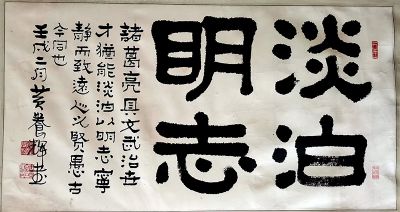 淡泊
明志
諸葛亮具文武治世
才猶能淡泊以明志寧
靜而致遠人必賢愚古
今同也
壬戌二月黃養輝并書